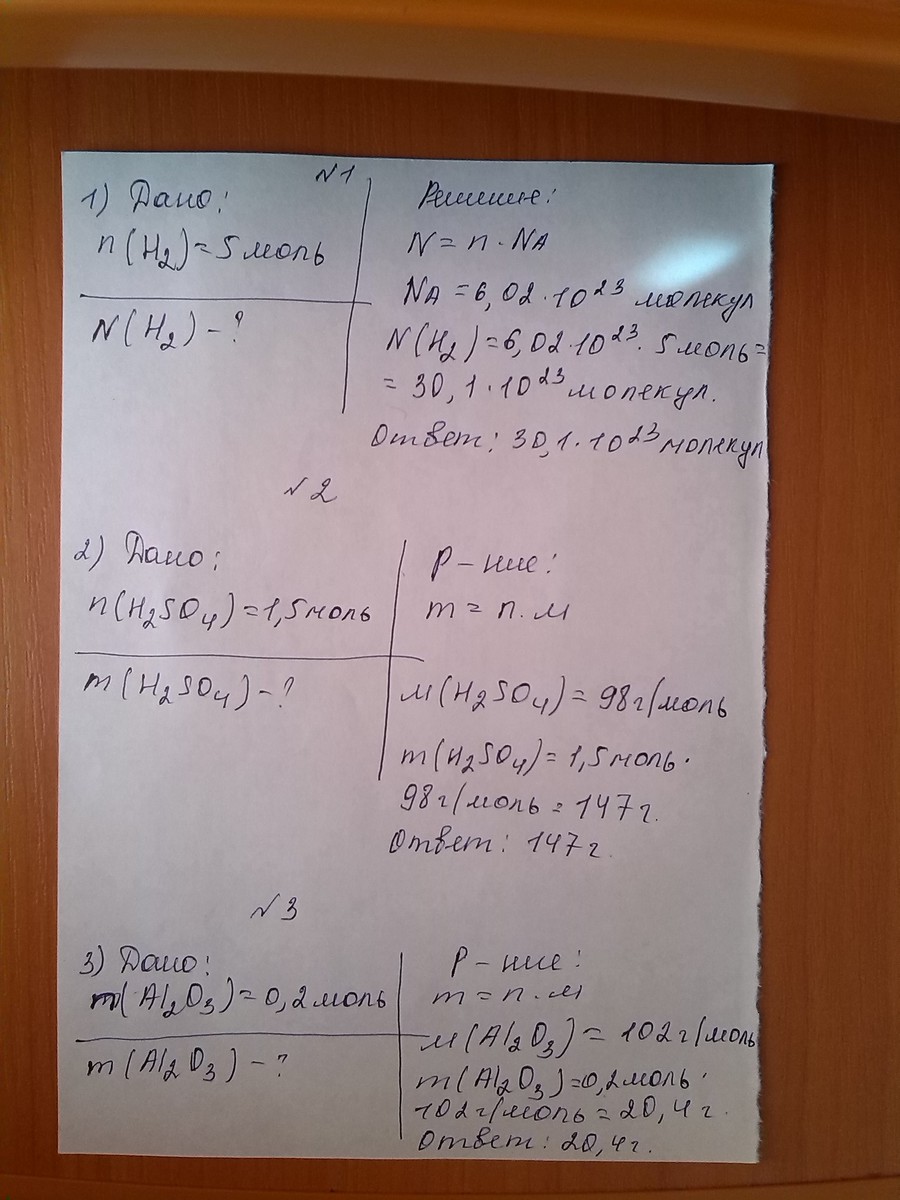 №1
1) Дано:
n(H₂)=5 моль
N(H₂) – ?
Решение:
N = n · NA
NA = 6,02·10²³ молекул
N(H₂)=6,02·10²³· 5 моль=
= 30,1·10²³ молекул.
Ответ: 30,1·10²³ молекул
№2
2) Дано:
n(H₂SO₄)=1,5 моль
m(H₂SO₄) – ?
Р – ние:
m = n · м
м(H₂SO₄) = 98 г/моль
m(H₂SO₄)= 1,5 моль ·
98 г/моль = 147 г.
Ответ: 147 г
№3
3) Дано:
m(Al₂O₃)=0,2 моль
m(Al₂O₃) – ?
Р – ние:
m = n · м
м(Al₂O₃) = 102 г/моль
m(Al₂O₃)=0,2 моль ·
102 г/моль = 20,4 г.
Ответ: 20,4 г.